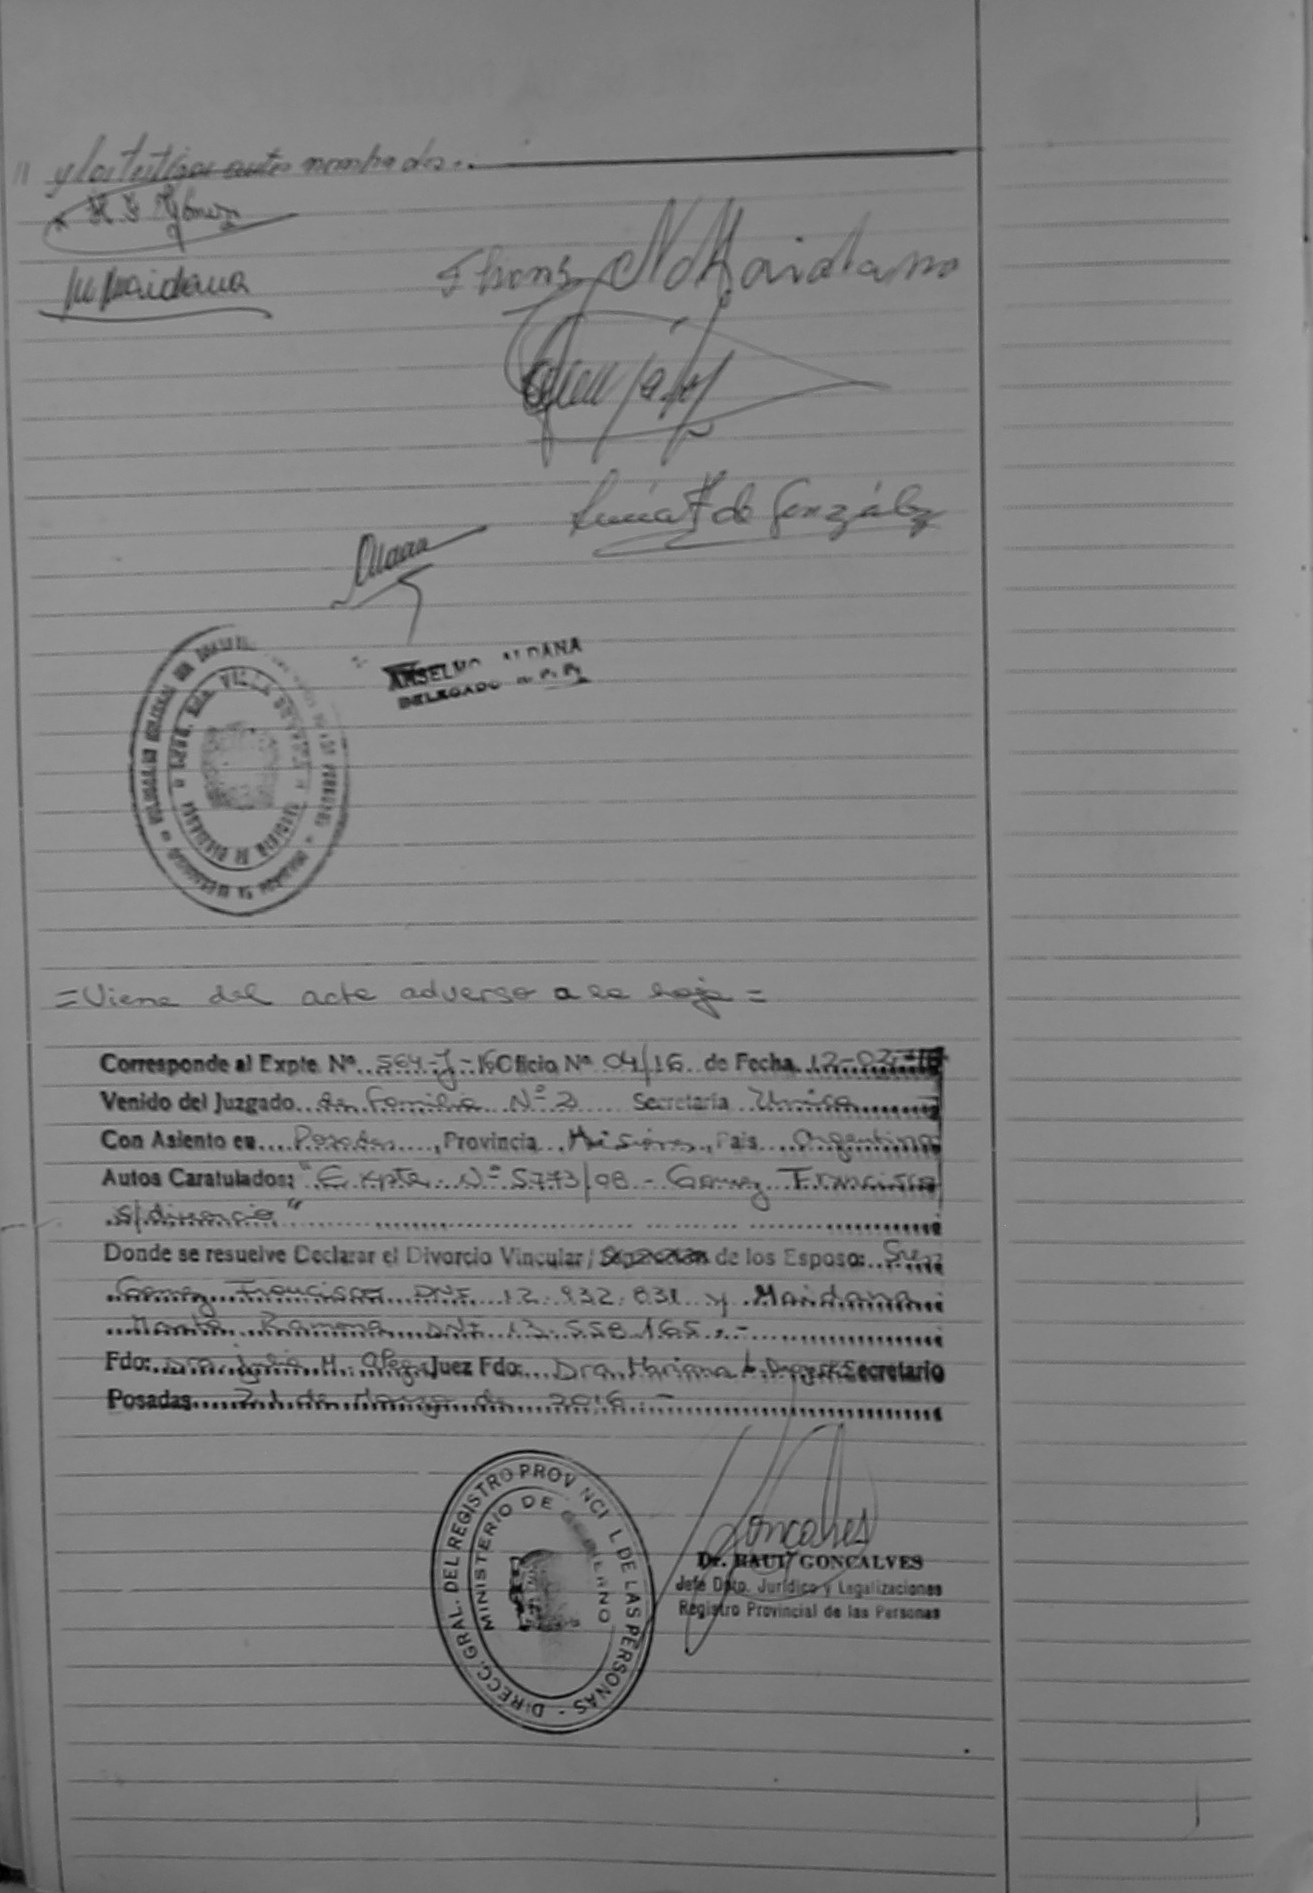 " y los testigos antes nombrados.-
M Maidana
N. Maidana
de González
ANSELMO ALDANA
DELEGADO R. P. P.
PROVINCIA DE MISIONES
= Viene del acta adverso a la hoja =
Corresponde al Expte. Nº 564-J-16 Oficio Nº 04/16 de Fecha 12-02-16
Venido del Juzgado de Familia Nº 2 Secretaría Unica
Con Asiento en Posadas, Provincia Misiones, País Argentina
Autos Caratulados: "Expte. Nº 5773/08 - Gomez Francisco
s/divorcio"
Donde se resuelve Declarar el Divorcio Vincular / de los Esposos: Sres
Gomez Francisco DNI 12.932.831 y Maidana
Marta Ramona DNI 13.558.165.-
Fdo: Dra. Julia H. Juez Fdo: Dra. Mariana Secretario
Posadas 21 de Marzo de 2016.-
DIRECC. GRAL. DEL REGISTRO PROVINCIAL DE LAS PERSONAS -
MINISTERIO DE GOBIERNO
Goncalves
Dr. RAUL GONCALVES
Jefe Dpto. Jurídico y Legalizaciones
Registro Provincial de las Personas